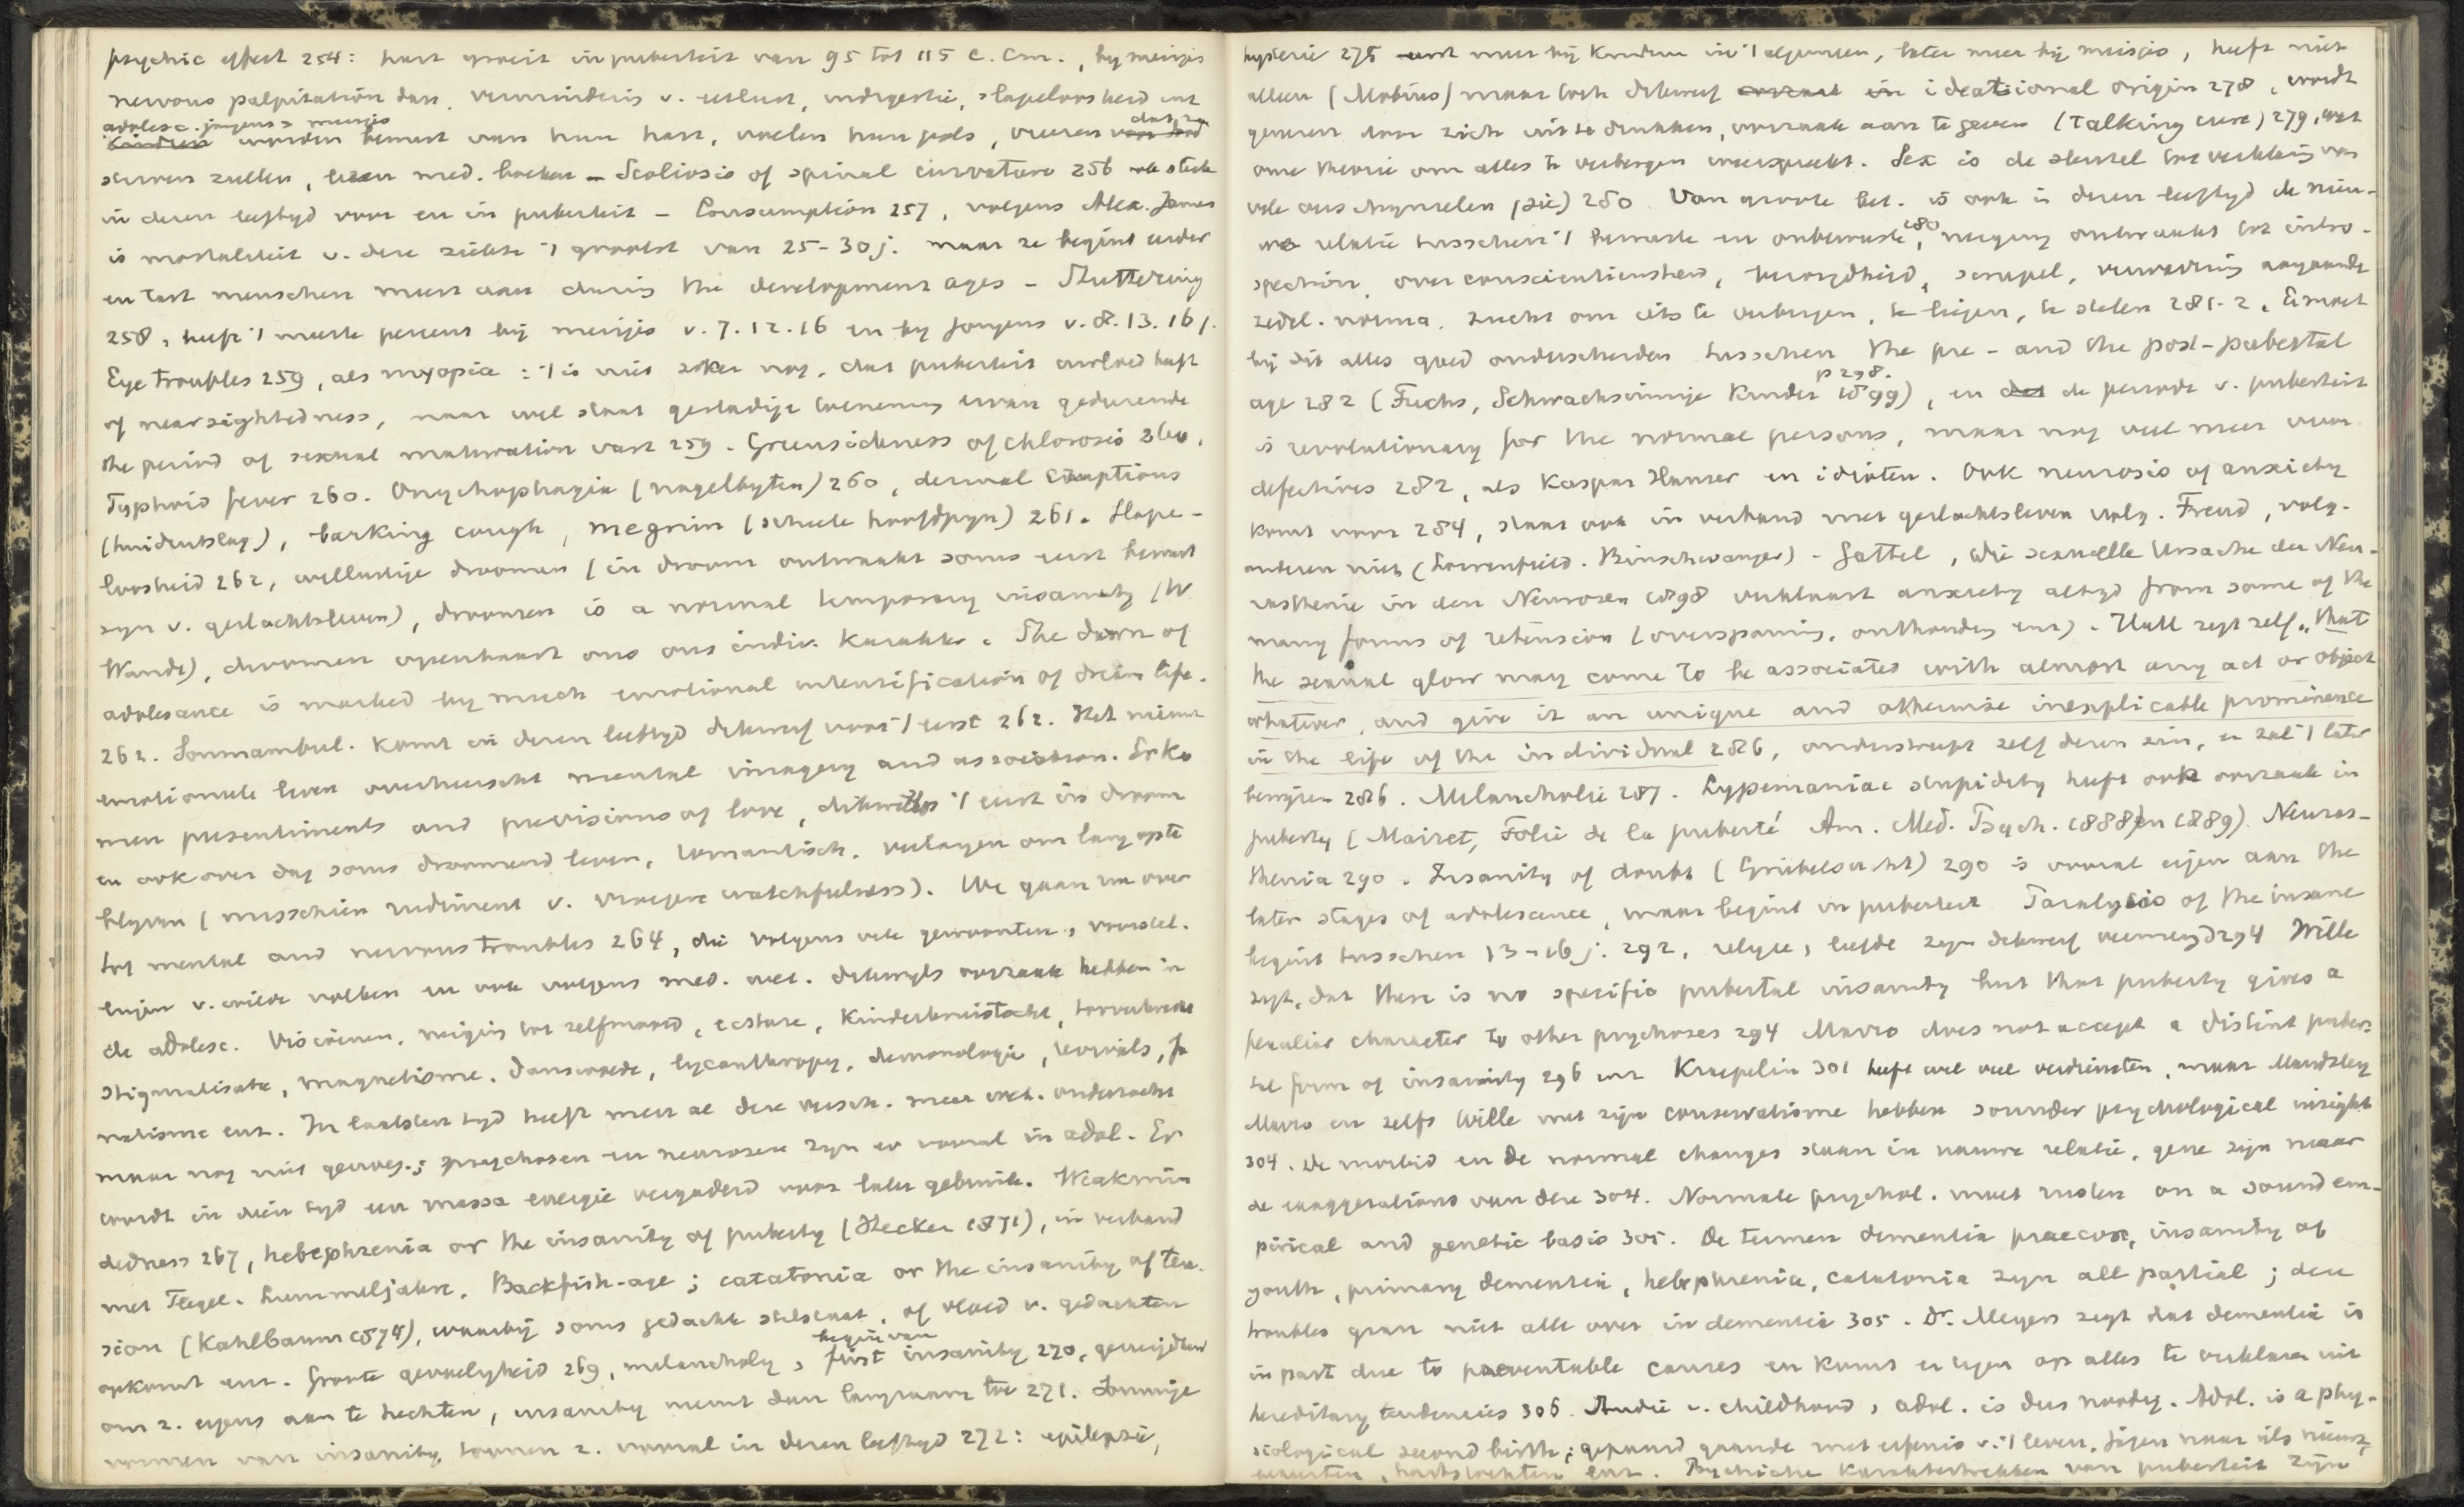 psychic effect 254: hart groeit in puberteit van 95 tot 115 c. cm., by meisjes
nervous palpitation dan, vermindering v. eetlust, indigestie, slapeloosheid enz
adolesc. jongens > meisjes dat ze
worden bewust van hun hart, voelen hun pols, vreezen
sterven zullen, lezen med. boeken – Scoliosis of spinal curvature 256 ook sterk
in dezen leeftyd voor en in puberteit – Consumption 257, volgens Alex. James
is mortaliteit v. deze ziekte 't grootst van 25-30 j. maar ze begint eerder
en tast menschen meest aan during the development ages – Stuttering
258, heeft 't meeste percent bij meisjes v. 7. 12. 16 en by jongens v. 8. 13. 16 j.
Eye troubles 259, als myopia: 't is niet zeker nog, dat puberteit invloed heeft
of nearsightedness, maar wel staat gestadige toeneming ervan gedurende
the period of sexual maturation vast 259. Greensickness of chlorosis 260,
Typhoid fever 260. Onychophagia (nagelbyten) 260, dermal eruptions
(huiduitslag), barking cough, megrim (scheele hoofdpyn) 261. Slape-
loosheid 262, wellustige droomen (in droom ontwaakt soms eerst bewust
zyn v. geslachtsleven), droomen is a normal temporary insanity (W
Wundt), droomen openbaart ons ons indiv. karakter. The dawn of
adolesance is marked by much emotional intensification of dream life.
262. Somnambul. komt in dezen leeftyd dikwerf voor 't eerst 262. Het nieuwe
emotioneele leven overheerscht mental imagery and association. Er ko
men presentiments and previsions of love, dikwijls 't eerst in droom
en ook over dag soms droomend leven, romantisch, verlangen om lang op te
blyven (misschien rudiment v. vroegere watchfulness). We gaan nu over
tot mental and nervous troubles 264, die volgens vele gewoonten, voorstel.
lingen v. wilde volken en ook volgens med. wet. dikwyls oorzaak hebben in
de adolesc. Visioenen, neiging tot zelfmoord, ecstase, Kinderkruistocht,
stigmatisatie, magnetisme, Danswoede, lycanthropy, demonologie, revivals, fa
natisme enz. In laatsten tyd heeft men al deze versch. meer wet. onderzocht
maar nog niet genoeg; psychosen en neurosen zyn er vooral in adol. Er
wordt in dien tyd een massa energie vergaderd voor later gebruik. Weakmin
dedness 267, hebephrenia or the insanity of puberty (Hecker 1871), in verband
met Flegel. Lummeljahre, Backfish-age; catatonia or the insanity of ten.
sion (Kahlbaum 1874), waarbij soms gedachte stilstaat, of vloed v. gedachten
begin van
opkomt enz. Groote gevoelyheid 269, melancholy, first insanity 270,
om z. ergens aan te hechten, insanity neemt dan langzaam toe 271. Sommige
vormen van insanity toonen z. vooral in dezen leeftyd 272: epilepsie,
hysterie 275 meer bij kinderen in 't algemeen, later meer bij meisjes, heeft niet
alleen (Mobius) maar toch dikwerf ideational origin 278, wordt
genezen door zich uit te drukken, oorzaak aan te geven (Talking cure) 279, wat
onze theorie om alles te verbergen weerspreekt. Sex is de sleutel tot verklaring van
vele ons (sic) 280. Van groote bet. is ook in dezen leeftyd de nieu-
we relatie tusschen 't bewuste en onbewuste 280, neiging ontwaakt tot intro-
spection, overconscientieusheid, scrupel, verwarring aangaande
zedel. norma. zucht om iets te verbergen, te liegen, te stelen 281-2. Er moet
bij dit alles goed onderscheiden tusschen the pre- and the post-pubertal
p 298.
age 282 (Fuchs, Schwachsinnige Kinder 1899), en de periode v. puberteit
is revolutionary for the normal persons, maar nog veel meer voor
defectives 282, als Kaspar Hauser en idioten. Ook neurosis of anxiety
komt voor 284, staat ook in verband met geslachtsleven volg. Freud, volg.
anderen niet (Loewenfeld. Binschwanger) – Gattel, die sexuelle Ursache der Neu-
rasthenie in den Neurosen 1898 verklaart anxiety altyd from some of the
many forms of retension (overspanning, onthouding enz). Hall zegt zelf „that
the sexual glow may come to be associated with almost any act or object
whatever, and give it an unique and otherwise inexplicable prominence
in the life of the individual 286, onderstreept zelf dezen zin, en zal 't later
bewijzen 286. Melancholie 287. Lypemaniac stupidity heeft ook oorzaak in
puberty (Mairet, Folie de la puberté Ann. Med. Psych. 1888 en 1889). Neuras-
thenia 290. Insanity of doubt (Grübelsucht) 290 is vooral eigen aan the
later stages of adolescence, maar begint in puberteit. Paralysis of the insane
begint tusschen 13-16 j. 292, religie, liefde zyn dikwerf vermengd 294 Wille
zegt, dat there is no specific pubertal insanity but that puberty gives a
peculiar character to other psychoses 294 Marro does not accept a distint puber-
tal form of insanity 296 enz Kraepelin 301 heeft wel veel verdiensten, maar Maudsley
Marro en zelfs Wille met zijn conservatisme hebben sounder psychological insight
304. De morbid en de normal changes staan in nauwe relatie, gene zijn maar
de exaggerations van deze 304. Normale psychol. moet rusten on a sound em-
pirical and genetic basis 305. De termen dementia praecox, insanity of
youth, primary dementia, hebephrenia, catatonia zyn all partial; deze
troubles gaan niet alle over in dementia 305. Dr. Meyers zegt dat dementia is
in part due to preventable causes en komt er tegen op alles te verklaren uit
hereditary tendencies 306. Studie v. childhood, adol. is dus noodig. Adol. is a phy-
siological second birth; gepaard gaande met erfenis v. 't leven, jagen naar iets nieuws,
hartstochten enz. Psychische karaktertrekken van puberteit zijn